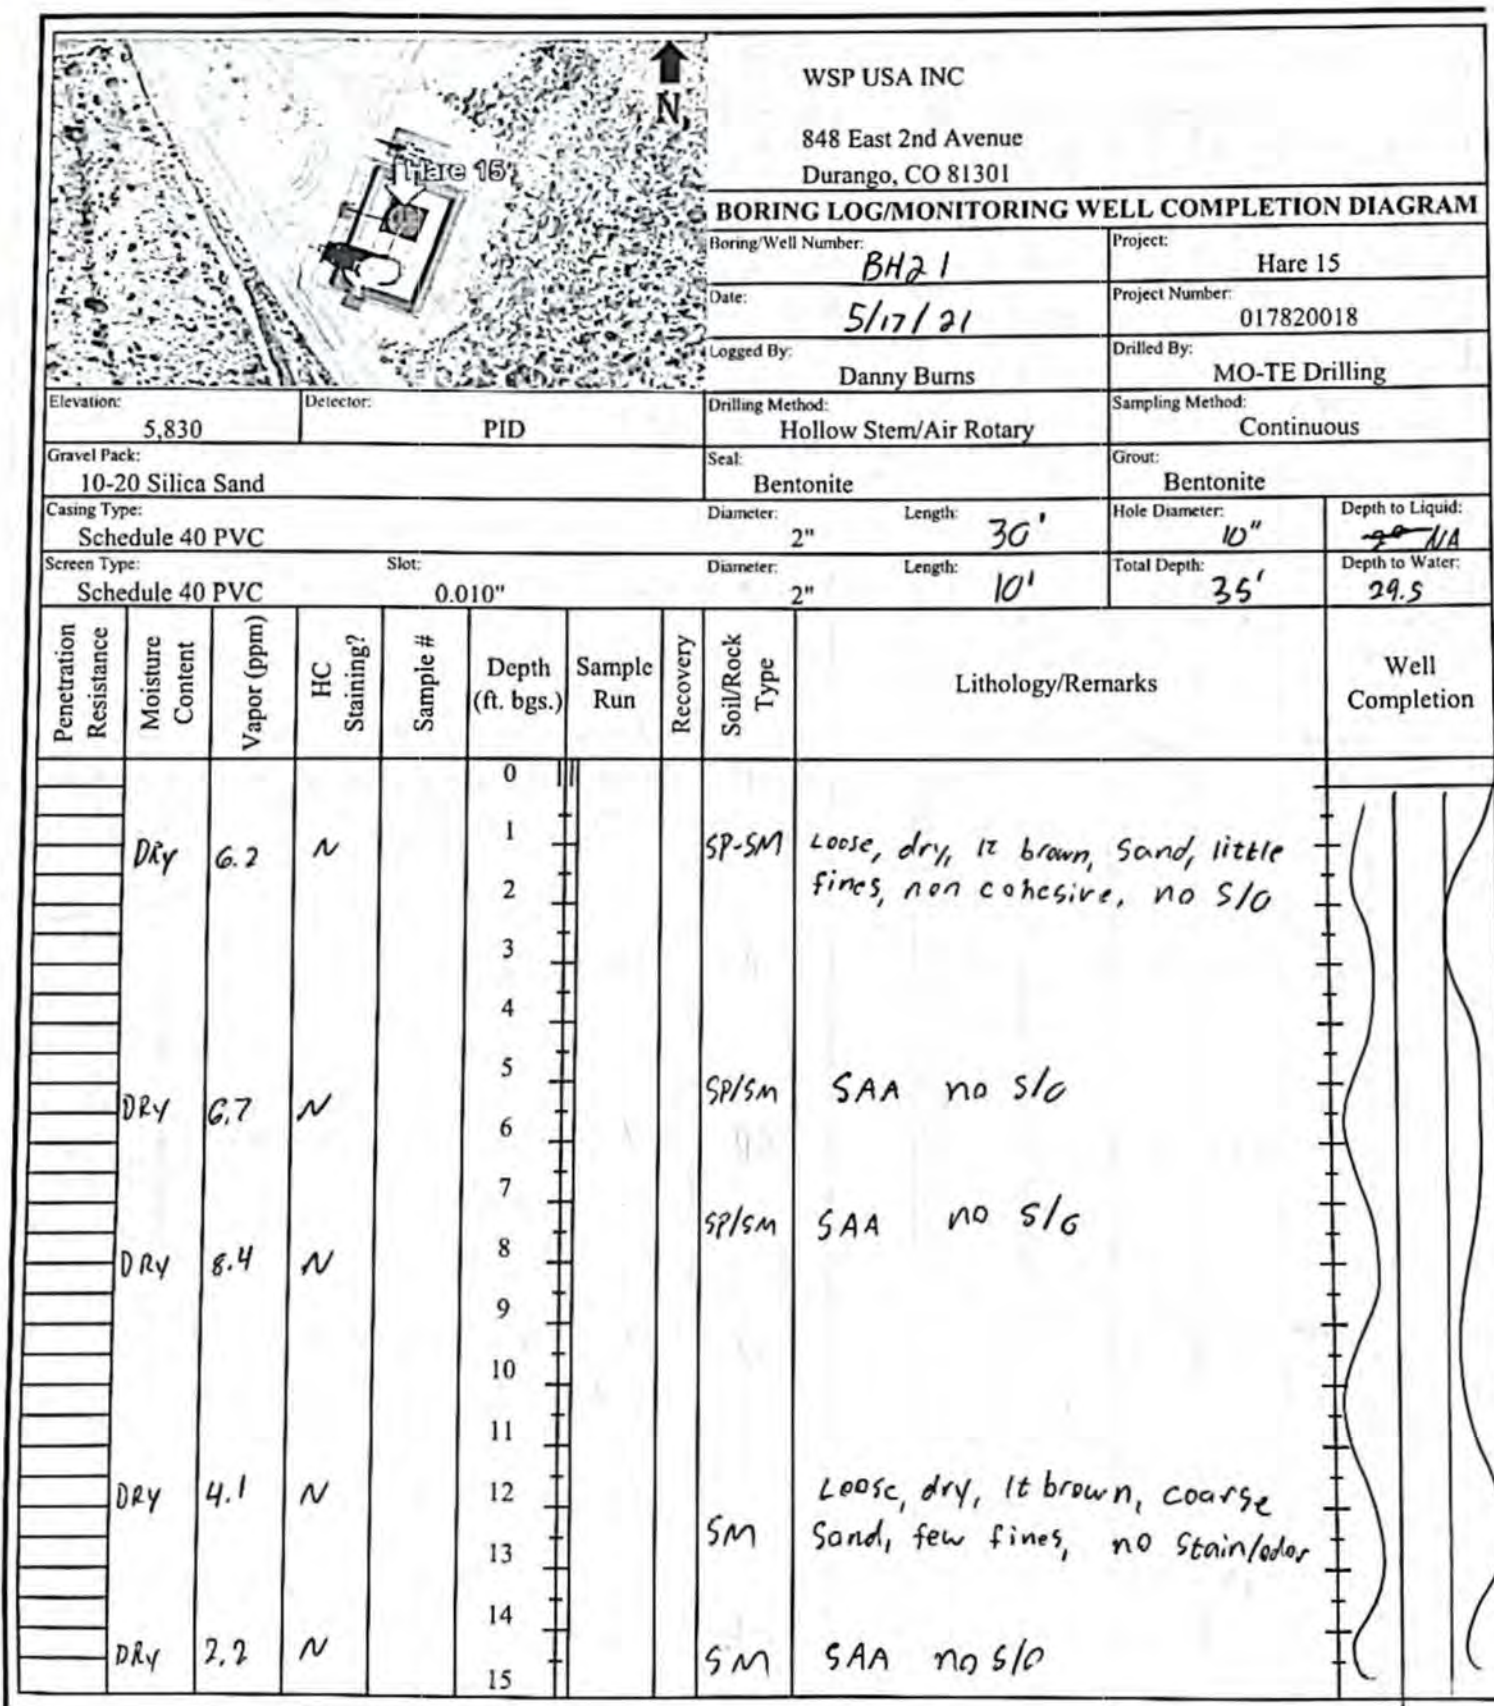 N
Hare 15
WSP USA INC
848 East 2nd Avenue
Durango, CO 81301
BORING LOG/MONITORING WELL COMPLETION DIAGRAM
Boring/Well Number: BH21 Project: Hare 15
Date: 5/17/21 Project Number: 017820018
Logged By: Danny Burns Drilled By: MO-TE Drilling
Elevation: 5,830 Detector: PID Drilling Method: Hollow Stem/Air Rotary Sampling Method: Continuous
Gravel Pack: 10-20 Silica Sand Seal: Bentonite Grout: Bentonite
Casing Type: Schedule 40 PVC Diameter: 2" Length: 30' Hole Diameter: 10" Depth to Liquid: NA
Screen Type: Schedule 40 PVC Slot: 0.010" Diameter: 2" Length: 10' Total Depth: 35' Depth to Water: 29.5
Penetration Resistance Moisture Content Vapor (ppm) HC Staining? Sample # Depth (ft. bgs.) Sample Run Recovery Soil/Rock Type Lithology/Remarks Well Completion
0
1
DRY 6.2 N SP-SM Loose, dry, lt brown, Sand, little
2 fines, non cohesive, no S/O
3
4
5
DRY 6.7 N SP/SM SAA no S/O
6
7
SP/SM SAA no S/O
8
DRY 8.4 N
9
10
11
DRY 4.1 N 12 Loose, dry, lt brown, coarse
13 SM Sand, few fines, no Stain/odor
14
DRY 2.2 N SM SAA no S/O
15